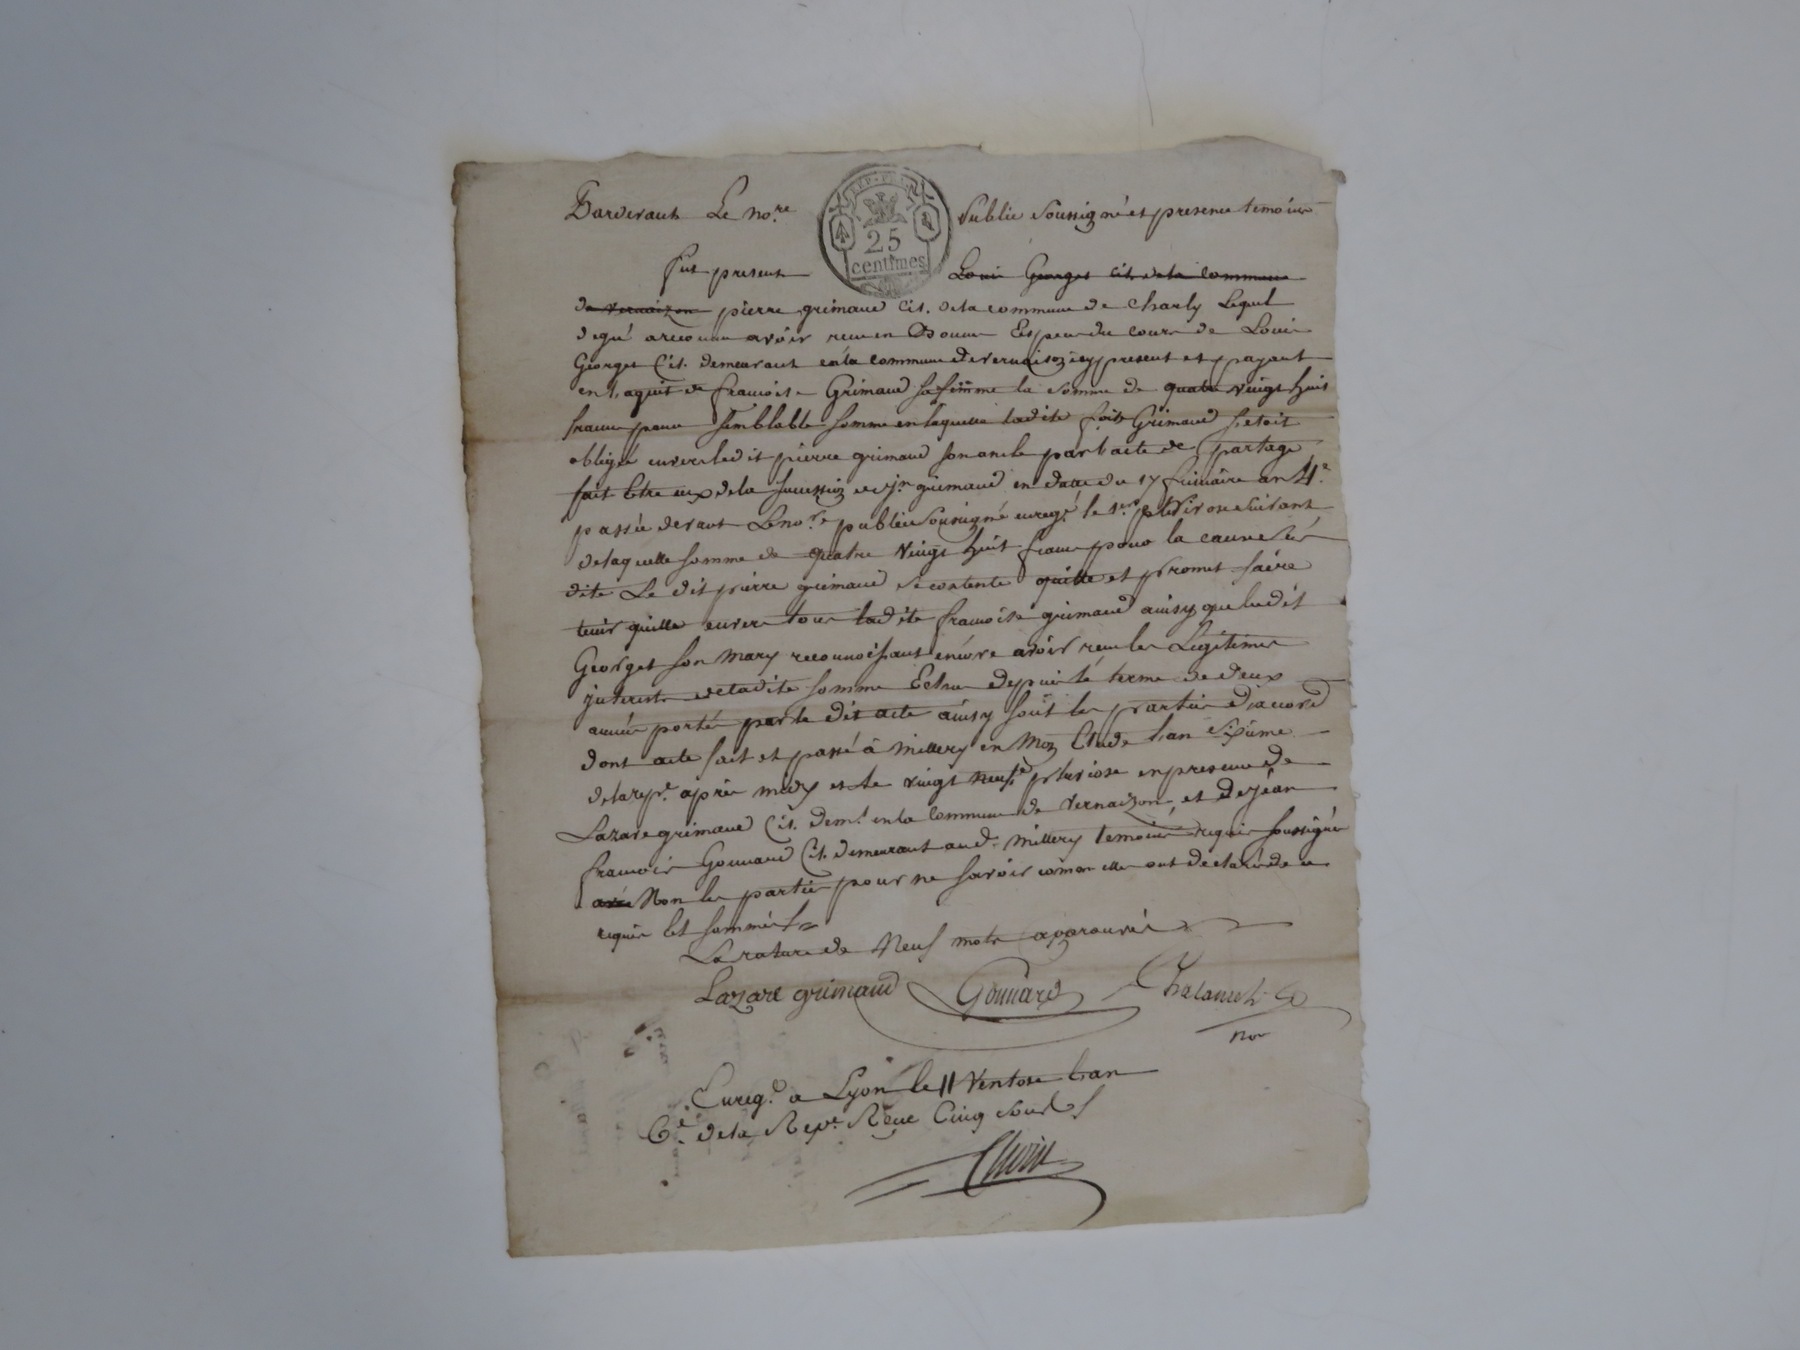 Pardevant Le no.re public soussigné et presence temoins
REP. FRA
25
centimes
fut present Louis Georges cit. de la commune
de vernaizon pierre grimaud Cit. de la commune de Charly Lequel
de gré a reconnu avoir reçu en Bonne Espece du cours de Louis
Georges Cit. demeurant en la commune de vernaison icy present et payant
en l'aquit de francoise Grimaud sa femme la somme de quatre vingt huit
francs pour semblable somme en laquelle ladite foise Grimaud s'etoit
obligée envers ledit pierre grimaud son oncle par l'acte de partage
fait Entre eux de la succession de grimaud en datte du 17 frimaire an 4.e
passée devant Le no.re public soussigné enregé. le 1er nivose suivant
de laquelle somme de quatre vingt huit francs pour la cause sus
dite Le dit pierre grimaud se contente quitte et promet faire
tenir quitte envers tous ladite francoise grimaud ainsy que ledit
Georges son mary reconnoissant encore avoir reçu les Legitimes
interets de ladite somme Echus depuis le terme de deux
années porté par le dit acte ainsy sont les parties d'accord
dont acte fait et passé à millery en Mon Etude L'an sixieme
de la rep.e apres midy et le vingt neuf.e pluviose en presence de
Lazare grimaud Cit. dem.t en la Commune de Vernaizon, et de jean
francois Gonnard Cit. demeurant aud. millery temoins requis soussignés
Non les parties pour ne savoir comme elles ont declaré de ce
requis Et sommés
La rature de Neuf mots aprouvée
Lazare grimaud Gonnard Chalanch
nore
Enreg.é a Lyon le 11 Ventose L'an
6.e de la Rep.e Reçu Cinq sous